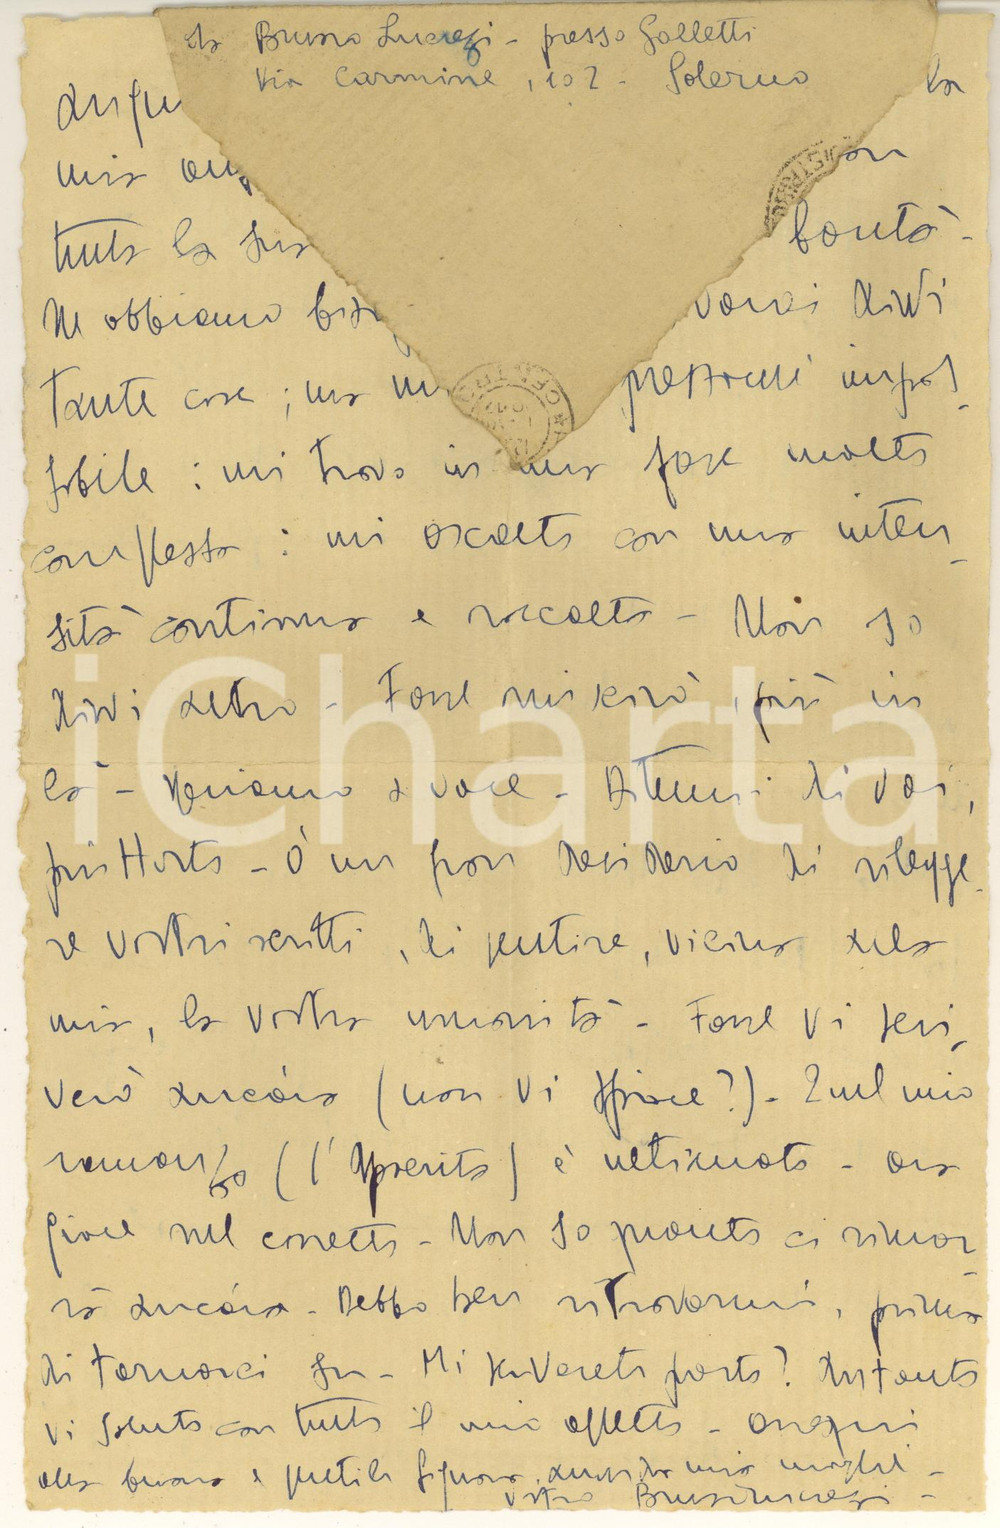 da Bruno Lucrezi - presso Galletti
Via Carmine, 102 - Salerno
la
mia
tutta la sua bontà -
Ne abbiamo vorrei dirvi
tante cose; ma impos-
sibile: mi trovo in una fase molto
complessa: mi ascolto con una inten-
sità continua e raccolta - Non so
dirvi altro - Forse mi sarà, più in
là - Veniamo a voi - Ditemi di voi,
piuttosto - È un gran desiderio di rilegge-
re vostri scritti, di sentire, vicina alla
mia, la vostra umanità - Forse vi scri-
verò ancora (non vi spiace?) - Quel mio
romanzo è ultimato - ora
giace nel cassetto - Non so quanto ci rimar-
rà ancora - Debbo ben ritrovarmi, prima
di tornarci su - Mi scriverete presto? Intanto
vi saluto con tutto il mio affetto - ossequi
alla buona e gentile Signora, anche da mia moglie -
Vostro Bruno Lucrezi -
iCharta